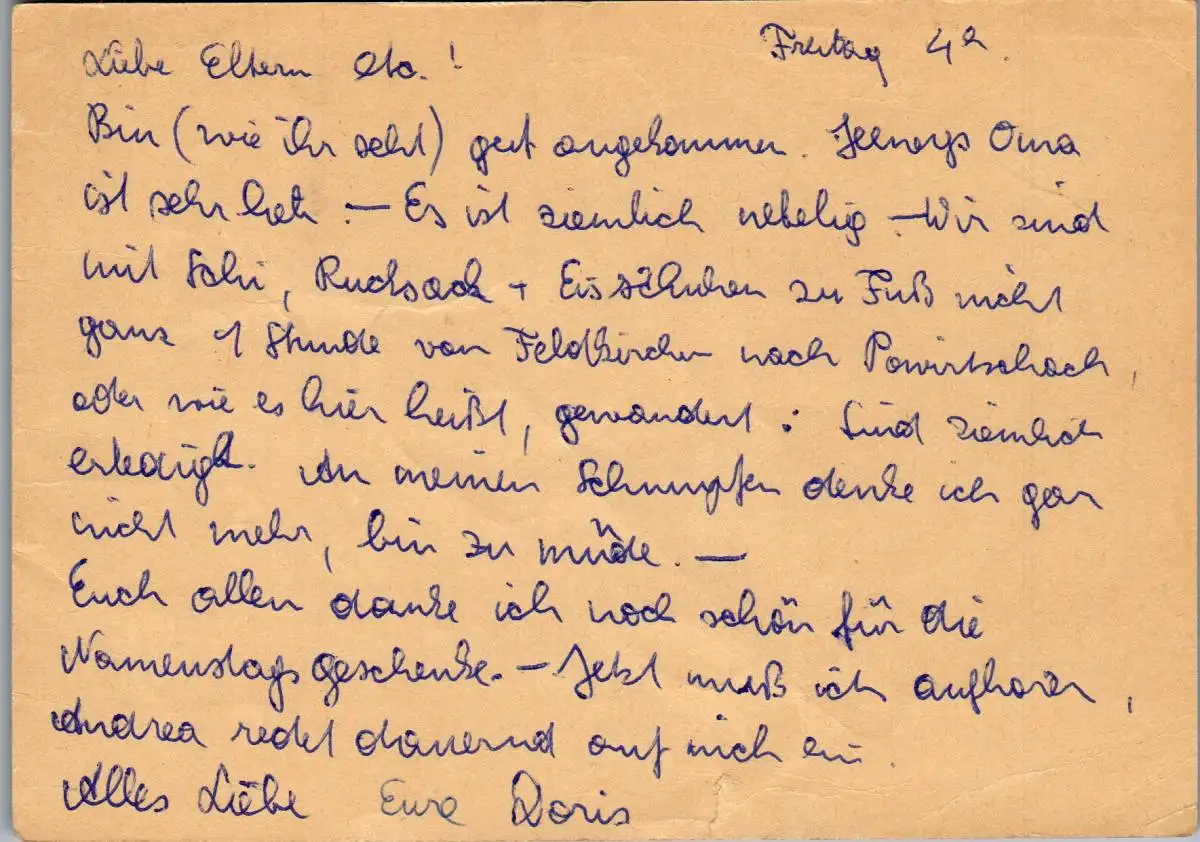 Freitag 4h.
Liebe Eltern etc.!
Bin (wie ihr seht) gut angekommen. Oma
ist sehr lieb. — Es ist ziemlich nebelig — Wir sind
mit Schi, Rucksack + Eisschuhen zu Fuß nicht
ganz 1 Stunde von Feldkirchen nach Powirtschach,
oder wie es hier heißt, gewandert. Sind ziemlich
erledigt. An meinen Schnupfen denke ich gar
nicht mehr, bin zu müde. —
Euch allen danke ich noch schön für die
Namenstagsgeschenke. — Jetzt muß ich aufhören,
Andrea redet dauernd auf mich ein.
Alles Liebe Eure Doris